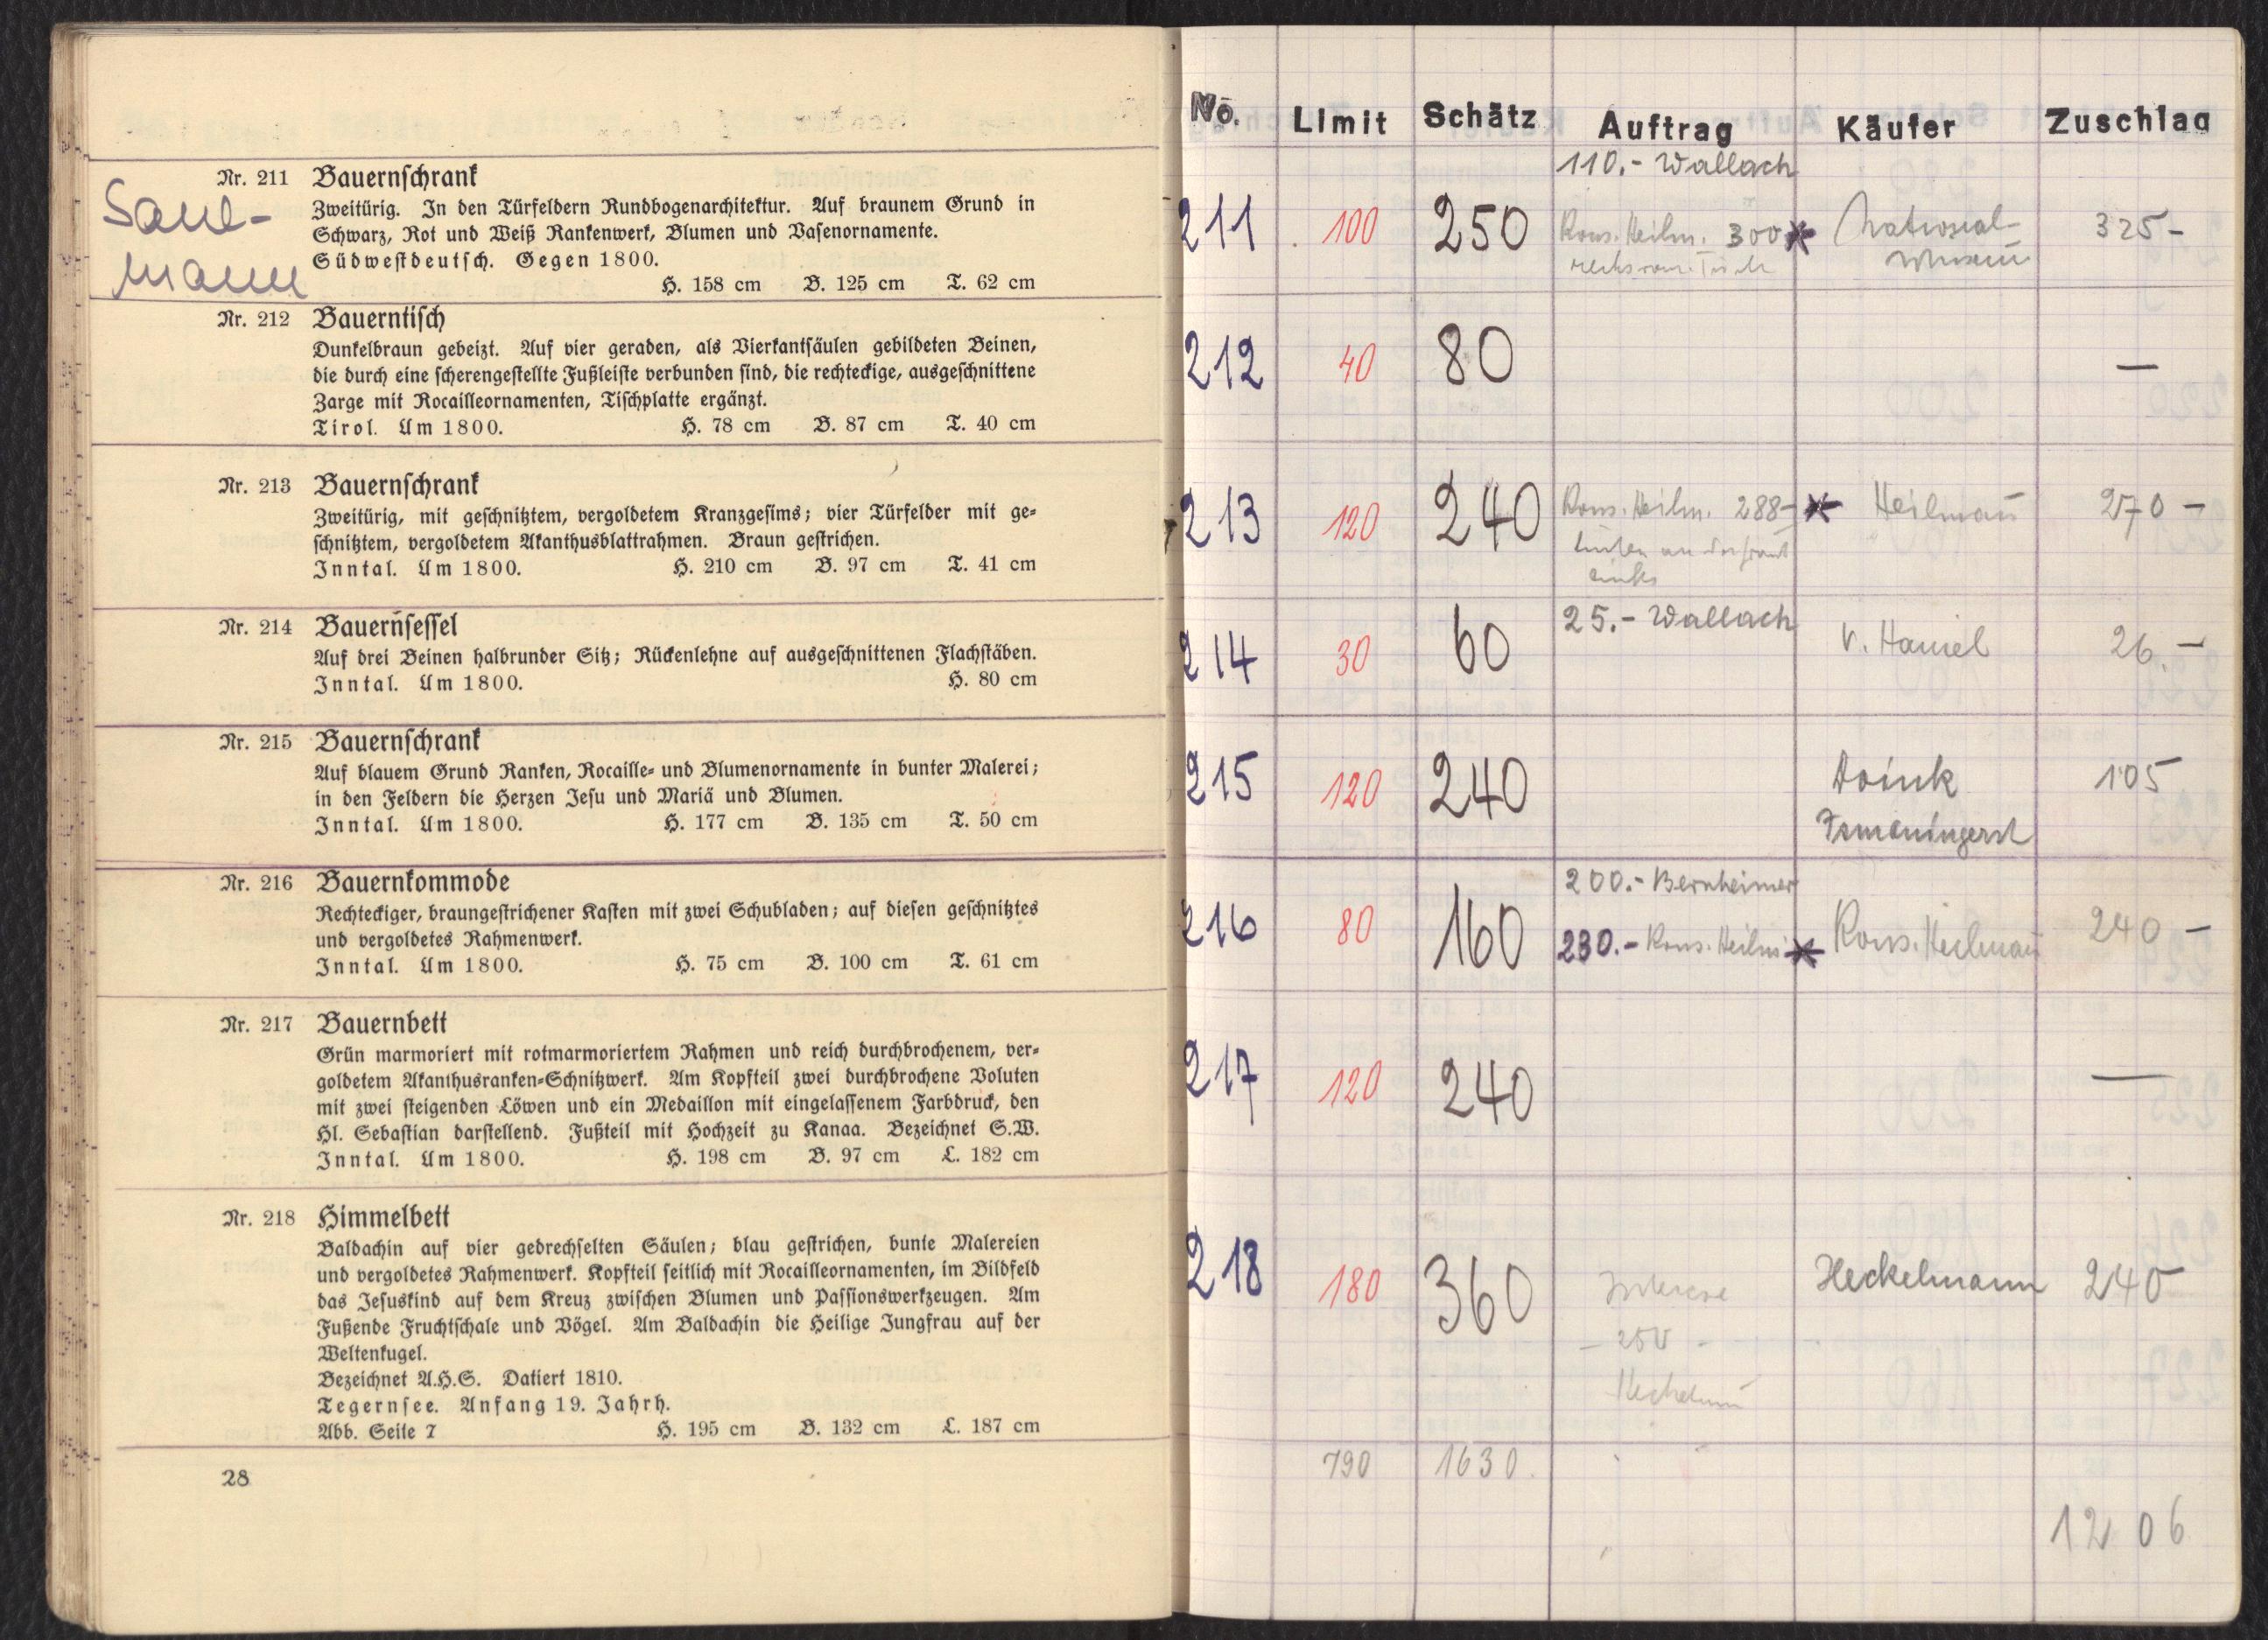 Saue-
mann
Nr. 211 Bauernschrank
Zweitürig. In den Türfeldern Rundbogenarchitektur. Auf braunem Grund in
Schwarz, Rot und Weiß Rankenwerk, Blumen und Vasenornamente.
Südwestdeutsch. Gegen 1800.
H. 158 cm B. 125 cm T. 62 cm
Nr. 212 Bauerntisch
Dunkelbraun gebeizt. Auf vier geraden, als Vierkantsäulen gebildeten Beinen,
die durch eine scherengestellte Fußleiste verbunden sind, die rechteckige, ausgeschnittene
Zarge mit Rocailleornamenten, Tischplatte ergänzt.
Tirol. Um 1800. H. 78 cm B. 87 cm T. 40 cm
Nr. 213 Bauernschrank
Zweitürig, mit geschnitztem, vergoldetem Kranzgesims; vier Türfelder mit ge-
schnitztem, vergoldetem Akanthusblattrahmen. Braun gestrichen.
Inntal. Um 1800. H. 210 cm B. 97 cm T. 41 cm
Nr. 214 Bauernsessel
Auf drei Beinen halbrunder Sitz; Rückenlehne auf ausgeschnittenen Flachstäben.
Inntal. Um 1800. H. 80 cm
Nr. 215 Bauernschrank
Auf blauem Grund Ranken, Rocaille- und Blumenornamente in bunter Malerei;
in den Feldern die Herzen Jesu und Mariä und Blumen.
Inntal. Um 1800. H. 177 cm B. 135 cm T. 50 cm
Nr. 216 Bauernkommode
Rechteckiger, braungestrichener Kasten mit zwei Schubladen; auf diesen geschnitztes
und vergoldetes Rahmenwerk.
Inntal. Um 1800. H. 75 cm B. 100 cm T. 61 cm
Nr. 217 Bauernbett
Grün marmoriert mit rotmarmoriertem Rahmen und reich durchbrochenem, ver-
goldetem Akanthusranken-Schnitzwerk. Am Kopfteil zwei durchbrochene Voluten
mit zwei steigenden Löwen und ein Medaillon mit eingelassenem Farbdruck, den
Hl. Sebastian darstellend. Fußteil mit Hochzeit zu Kanaa. Bezeichnet S.W.
Inntal. Um 1800. H. 198 cm B. 97 cm L. 182 cm
Nr. 218 Himmelbett
Baldachin auf vier gedrechselten Säulen; blau gestrichen, bunte Malereien
und vergoldetes Rahmenwerk. Kopfteil seitlich mit Rocailleornamenten, im Bildfeld
das Jesuskind auf dem Kreuz zwischen Blumen und Passionswerkzeugen. Am
Fußende Fruchtschale und Vögel. Am Baldachin die Heilige Jungfrau auf der
Weltenkugel.
Bezeichnet A.H.S. Datiert 1810.
Tegernsee. Anfang 19. Jahrh.
Abb. Seite 7 H. 195 cm B. 132 cm L. 187 cm
28
No. Limit Schätz Auftrag Käufer Zuschlag
110.- Wallach
211 100 250 Kons. Heilm. 300 * National- 325-
museum
212 40 80 —
213 120 240 Kons. Heilm. 288- * Heilmañ 270 -
links
25.- Wallach
214 30 60 v. Haniel 26.-
215 120 240 Doink 105
Ismaningerst
200.- Bernheimer
216 80 160 230.- Kons. Heilm * Kons. Heilmañ 240 -
217 120 240 —
218 180 360 Interesse Heckelmann 240
- 250 -
Heckelmañ
790 1630.
1206